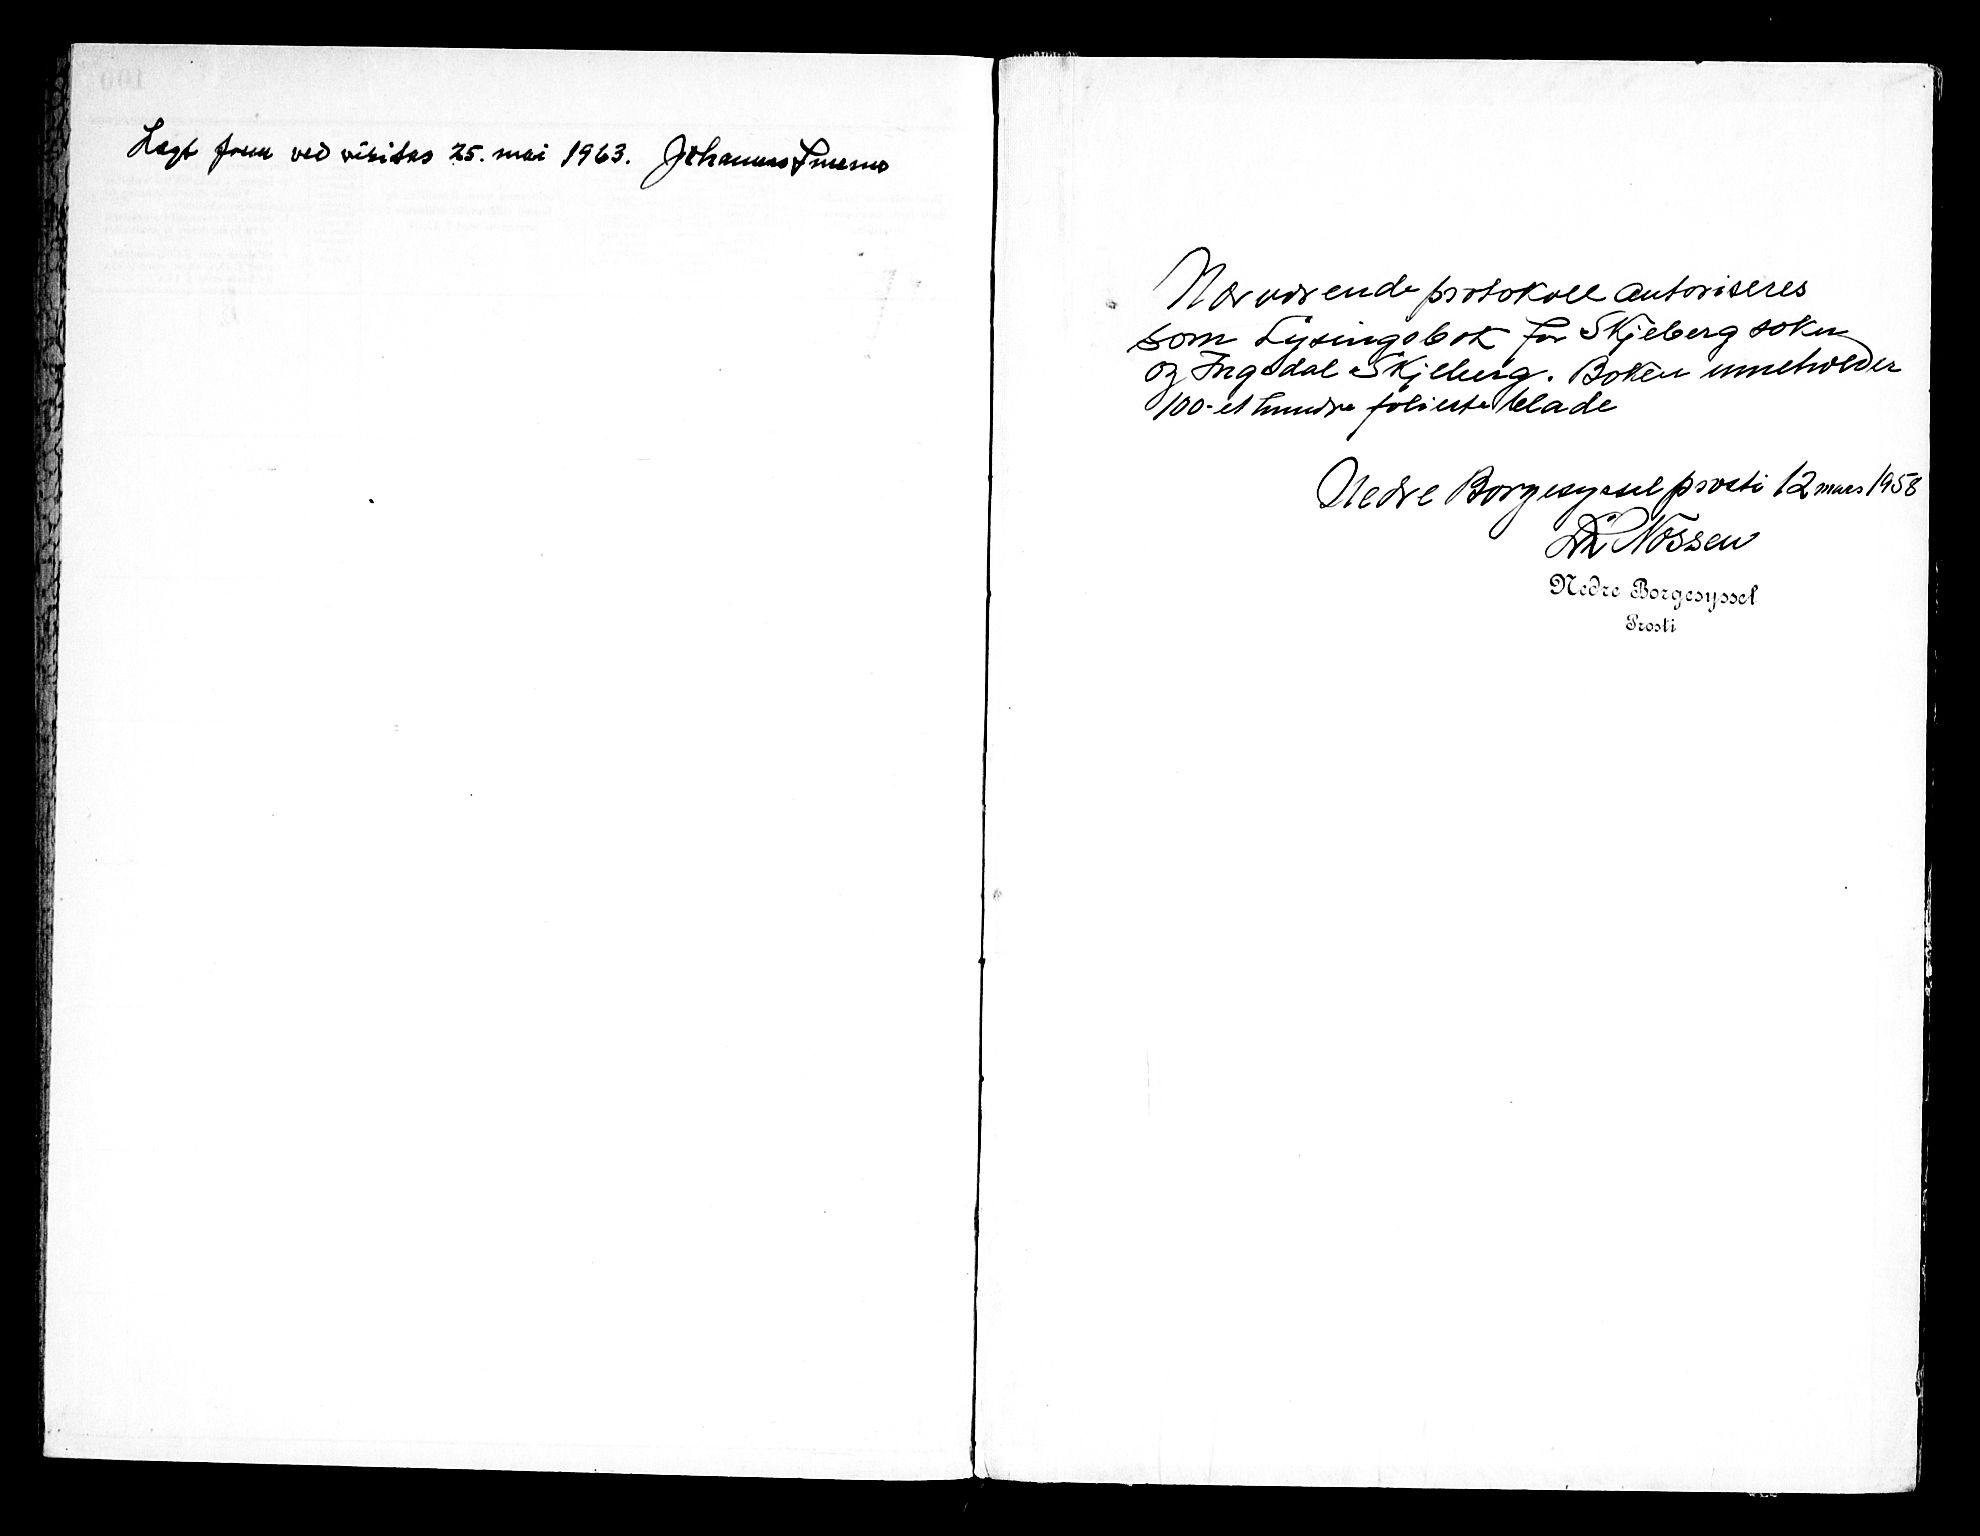 Lagt frem ved visitas 25. mai 1963. Johannes Smemo
100
Nærværende protokoll autoriseres
som Lysingsbok for Skjeberg sokn
og Ingedal Skjeberg. Boken inneholder
100 - et hundre folierte blade
Nedre Borgesyssel prosti 12 mars 1958
Nossen
Nedre Borgesyssel
Prosti